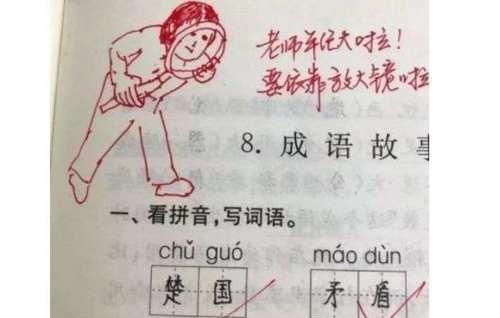 老师年纪大啦!
要依靠放大镜啦
8. 成语故事
一、看拼音,写词语。
chǔ guó máo dùn
楚国 矛盾